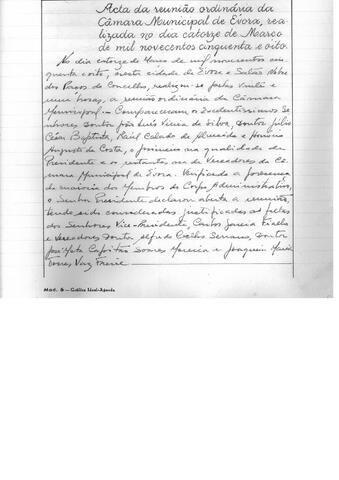 Acta da reunião ordinária da
Câmara Municipal de Évora, rea-
lizada no dia catorze de Março
de mil novecentos cinquenta e oito.
No dia catorze de Março de mil novecentos cin-
quenta e oito, nesta cidade de Évora e Salão Nobre
dos Paços do Concelho, realizou-se pelas vinte e
uma horas, a reunião ordinária da Câmara
Municipal. — Compareceram os Excelentíssimos Se-
nhores Doutor João Luís Vieira da Silva, Doutor Júlio
César Baptista, Raúl Calado de Almeida e António
Augusto da Costa, o primeiro na qualidade de
Presidente e os restantes na de Vereadores da Câ-
mara Municipal de Évora. Verificada a presença
da maioria dos Membros do Corpo Administrativo,
o Senhor Presidente declarou aberta a reunião,
tendo sido consideradas justificadas as faltas
dos Senhores Vice-Presidente, Carlos Garcia Fialho
e Vereadores Doutor Alfredo Coelho Serrano, Doutor
José Mata Capitão Soares Moreira e Joaquim Maria
Torres Vaz Freire.
Mod. 6 — Gráfica Ideal-Agueda